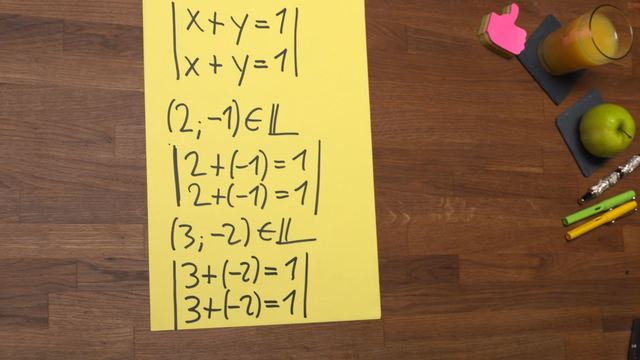 |x+y=1|
|x+y=1|
(2;-1)∈𝕃
|2+(-1)=1|
|2+(-1)=1|
(3;-2)∈𝕃
|3+(-2)=1|
|3+(-2)=1|